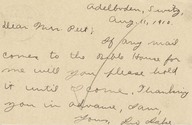 Adelboden, Switz,
Aug. 11, 1910.
Dear Miss Peet:
If any mail
comes to the Bible House for
me will you please hold
it until I come, Thanking
you in advance, I am,
Yours,